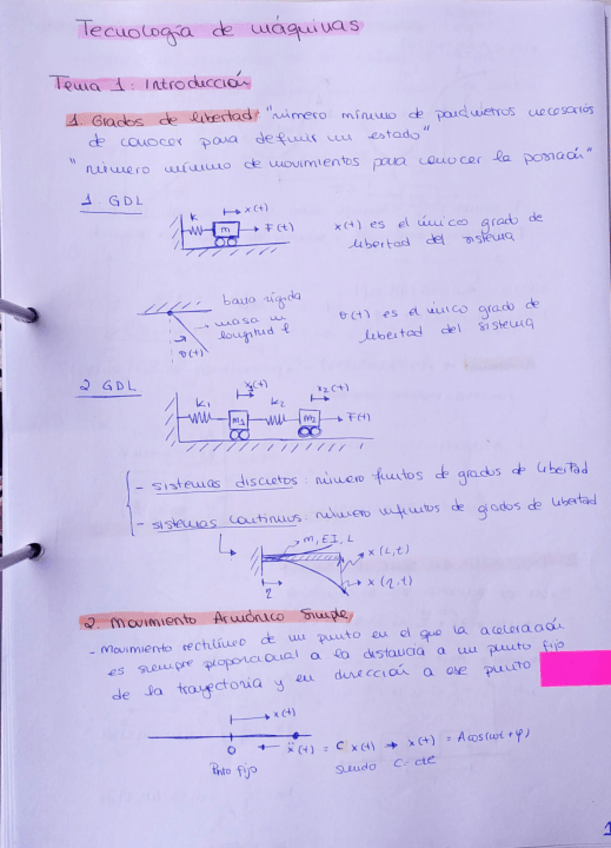 Tecnología de máquinas
Tema 1: Introducción
1. Grados de libertad: "número mínimo de parámetros necesarios
de conocer para definir un estado"
"número mínimo de movimientos para conocer la posición"
1 GDL
x(t)
k
m
F(t)
x(t) es el único grado de
libertad del sistema
barra rígida
masa m
longitud l
θ(t)
θ(t) es el único grado de
libertad del sistema
2 GDL
x(t)
x2(t)
k1
k2
m1
m2
F(t)
- sistemas discretos: número finitos de grados de libertad
- sistemas continuos: número infinitos de grados de libertad
m, EI, L
x(L,t)
x(η,t)
η
2. Movimiento Armónico Simple
- Movimiento rectilíneo de un punto en el que la aceleración
es siempre proporcional a la distancia a un punto fijo
de la trayectoria y en dirección a ese punto
x(t)
0
ẍ(t) = C x(t) → x(t) = A cos(ωt + φ)
Pnto fijo
siendo C: cte
1